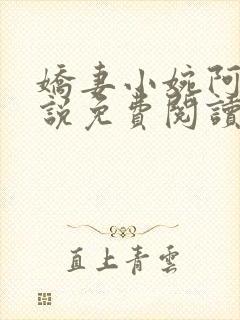 嬌妻小婉阿
說免費閱讀
直上青雲